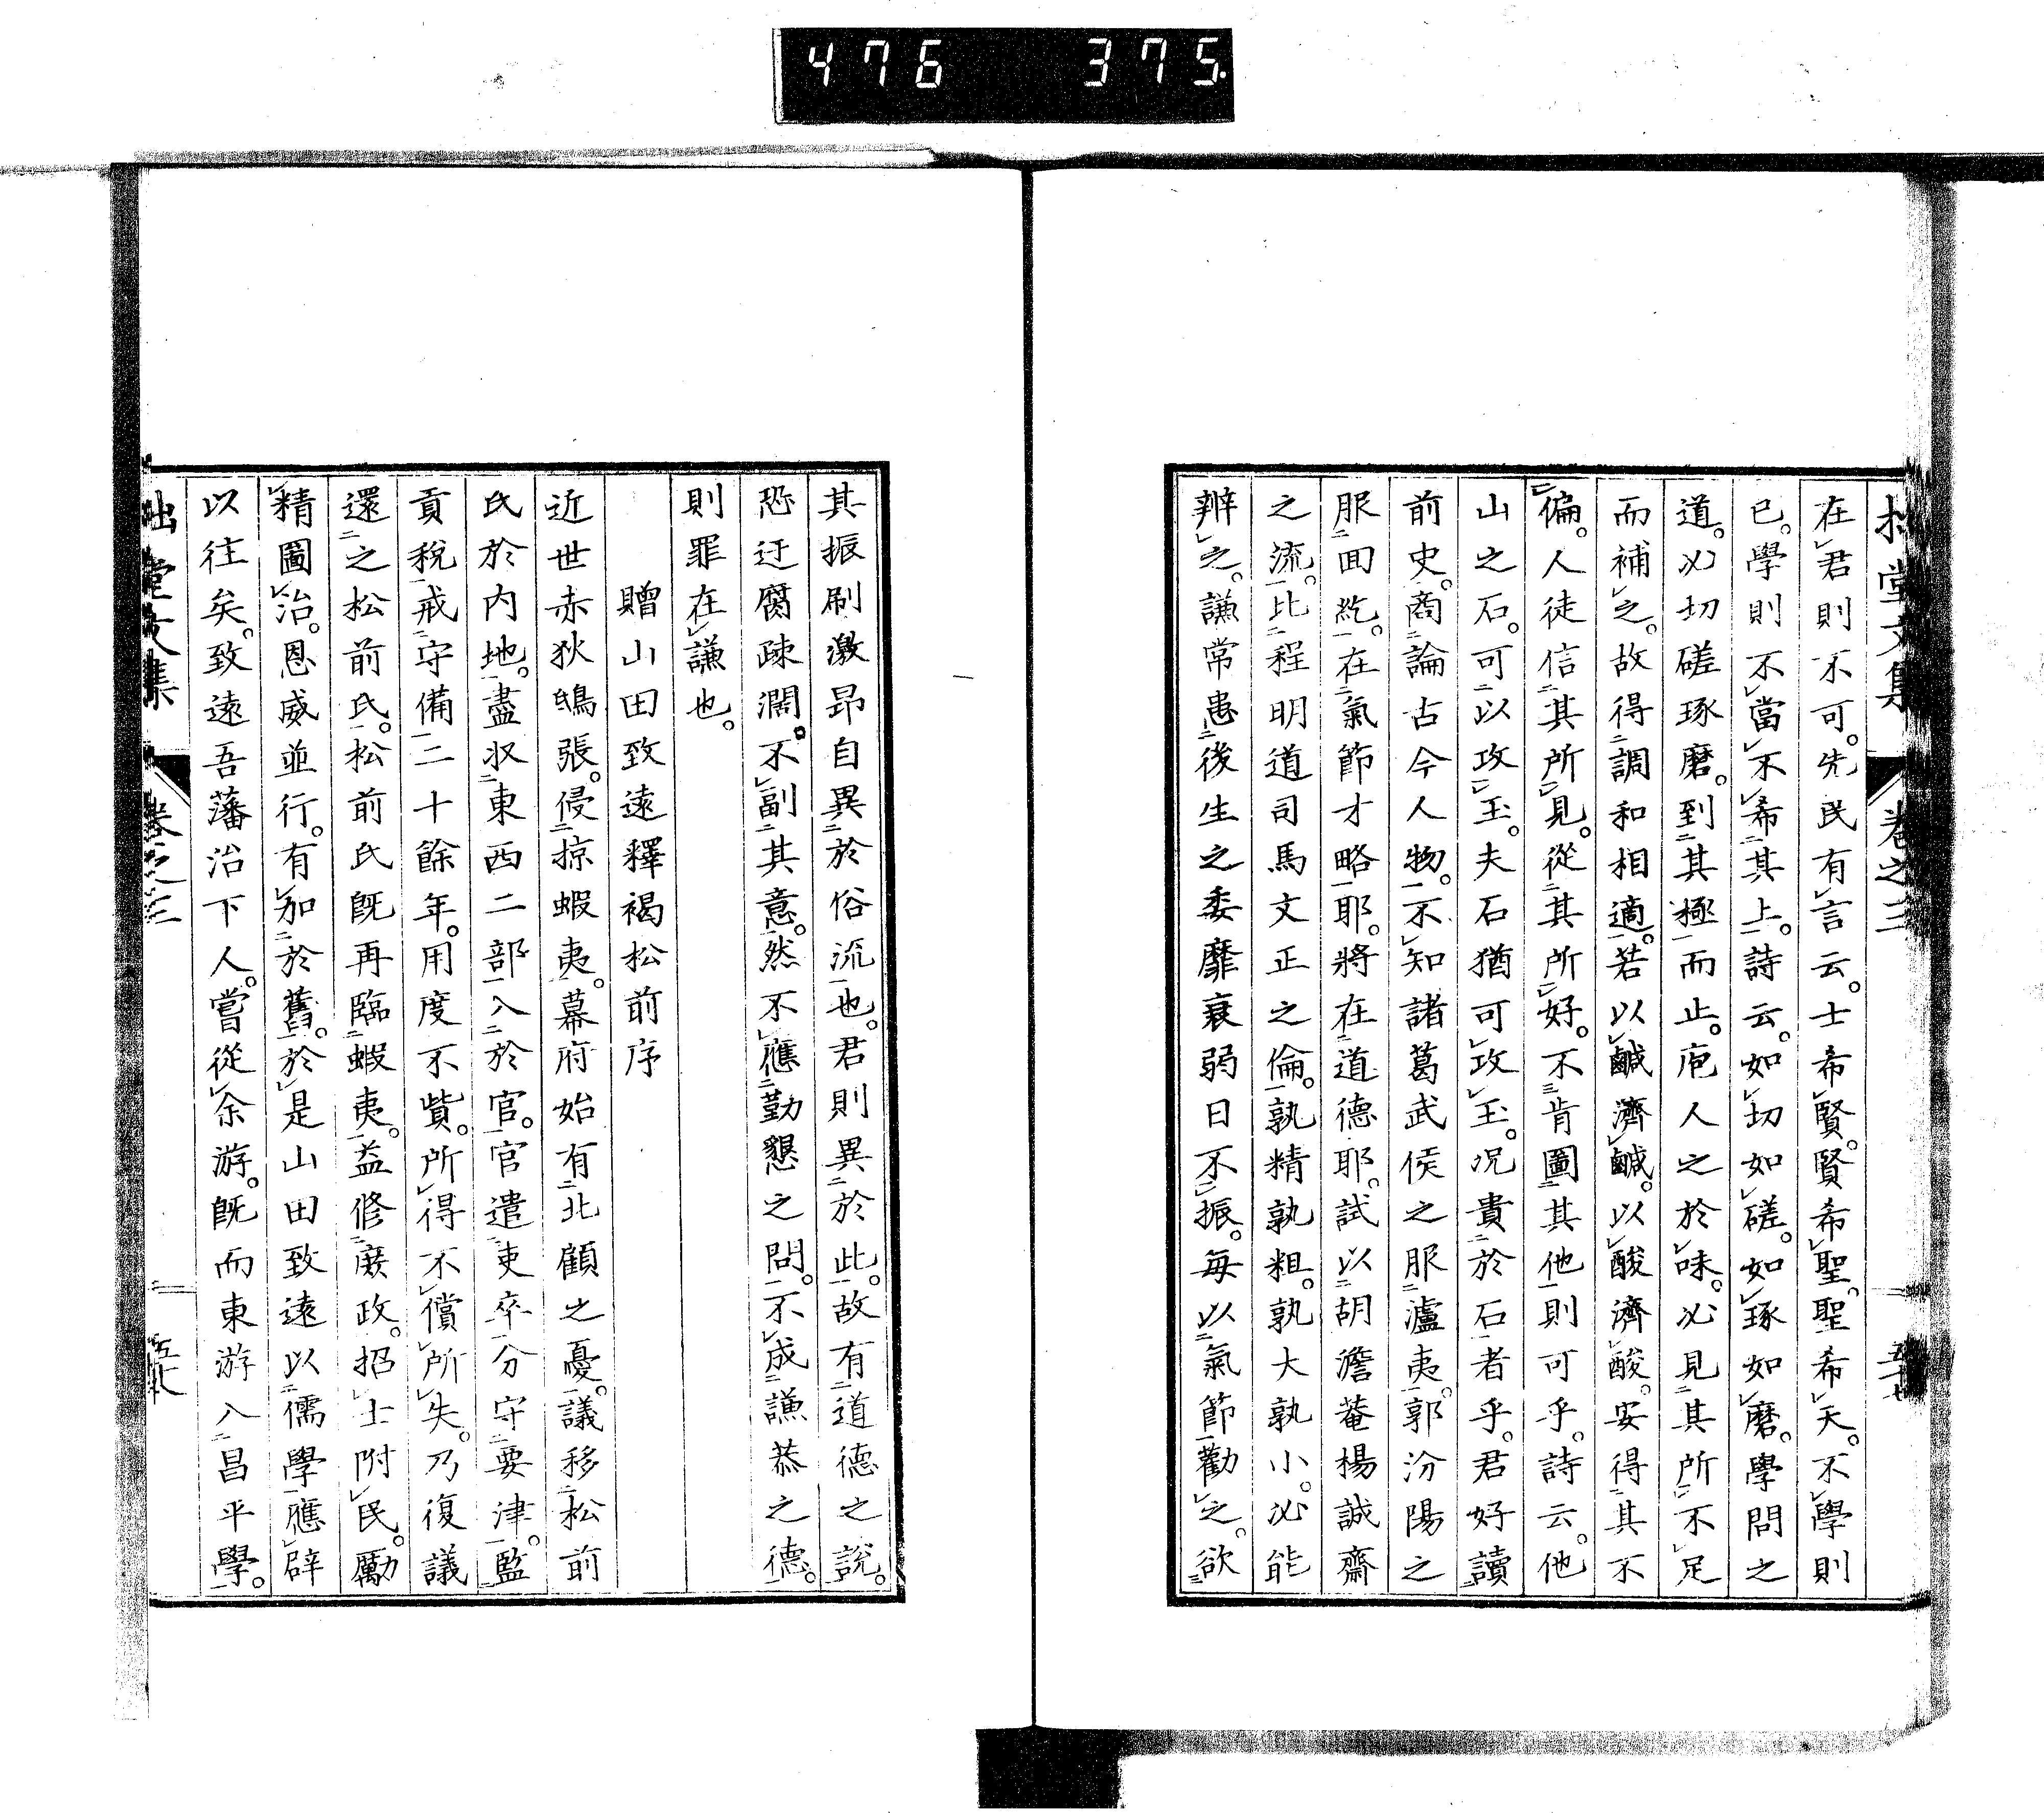 476 375
拙堂文集 卷之三
在君則不可。先民有言云。士希賢。賢希聖。聖希天。不學則
已。學則不當不希其上。詩云。如切如磋。如琢如磨。學問之
道。必切磋琢磨。到其極而止。庖人之於味。必見其所不足
而補之。故得調和相適。若以鹹濟鹹。以酸濟酸。安得其不
偏。人徒信其所見。從其所好。不肯圖其他則可乎。詩云。他
山之石。可以攻玉。夫石猶可攻玉。况貴於石者乎。君好讀
前史。商論古今人物。不知諸葛武侯之服瀘夷。郭汾陽之
服囬紇。在氣節才略耶。將在道德耶。試以胡澹菴楊誠齋
之流。比程明道司馬文正之倫。孰精孰粗。孰大孰小。必能
辨之。謙常患後生之委靡衰弱日不振。每以氣節勸之。欲
其振刷激昂自異於俗流也。君則異於此。故有道德之說。
恐迂腐疎濶。不副其意。然不應勤懇之問。不成謙恭之德。
則罪在謙也。
贈山田致遠釋褐松前序
近世赤狄鴟張。侵掠蝦夷。幕府始有北顧之憂。議移松前
氏於内地。盡収東西二部入於官。官遣吏卒分守要津。監
貢稅戒守備二十餘年。用度不貲。所得不償所失。乃復議
還之松前氏。松前氏既再臨蝦夷。益修廢政。招士附民。勵
精圖治。恩威並行。有加於舊。於是山田致遠以儒學應辟
以往矣。致遠吾藩治下人。嘗從余游。既而東游入昌平學。
拙堂文集 卷之三